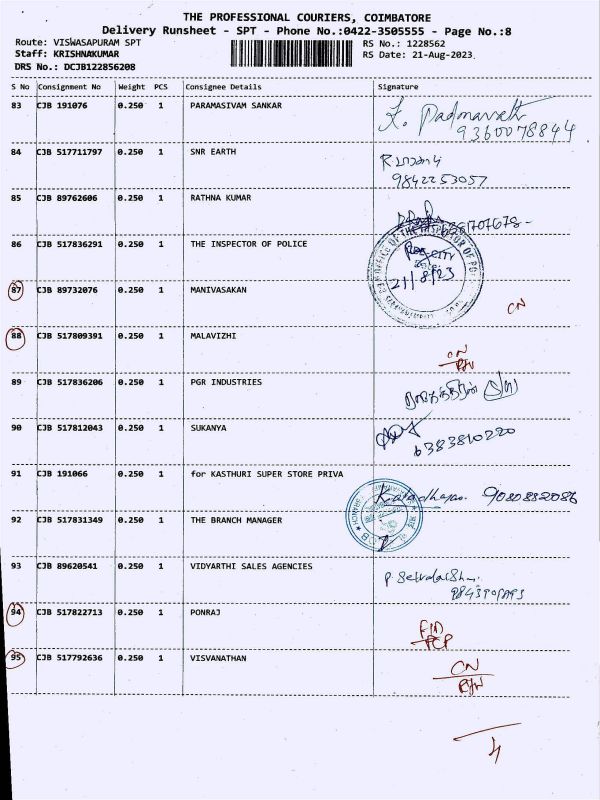 THE PROFESSIONAL COURIERS, COIMBATORE
Delivery Runsheet - SPT - Phone No.:0422-3505555 - Page No.:8
Route: VISWASAPURAM SPT
RS No.: 1228562
Staff: KRISHNAKUMAR
RS Date: 21-Aug-2023
DRS No.: DCJB122856208
S No Consignment No Weight PCS Consignee Details Signature
83 CJB 191076 0.250 1 PARAMASIVAM SANKAR
9360078844
84 CJB 517711797 0.250 1 SNR EARTH
9842253057
85 CJB 89762606 0.250 1 RATHNA KUMAR
86 CJB 517836291 0.250 1 THE INSPECTOR OF POLICE
21/8/23
87 CJB 89732076 0.250 1 MANIVASAKAN
CN
88 CJB 517809391 0.250 1 MALAVIZHI
CN
89 CJB 517836206 0.250 1 PGR INDUSTRIES
90 CJB 517812043 0.250 1 SUKANYA
6383810220
91 CJB 191066 0.250 1 for KASTHURI SUPER STORE PRIVA
92 CJB 517831349 0.250 1 THE BRANCH MANAGER
93 CJB 89620541 0.250 1 VIDYARTHI SALES AGENCIES
94 CJB 517822713 0.250 1 PONRAJ
95 CJB 517792636 0.250 1 VISVANATHAN
CN